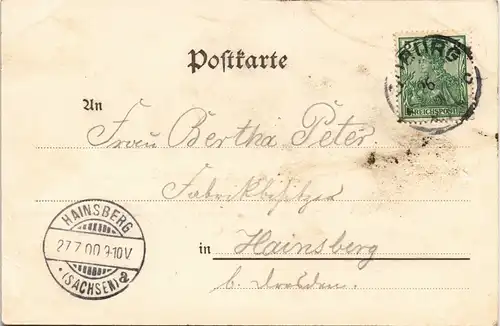 Postkarte
BURG
16
REICHSPOST
An
Frau Bertha Peter.
Fabrikbesitzer
HAINSBERG
27.7.00.9-10V
* (SACHSEN) a
in Hainsberg
b. Dresden.